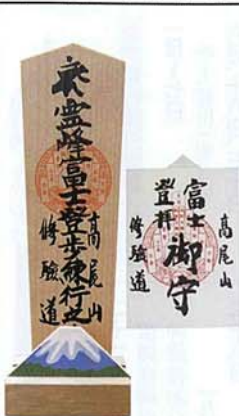 霊峰冨士登歩練行之
高尾山
修験道
富士
登拝
御守
高尾山
修験道